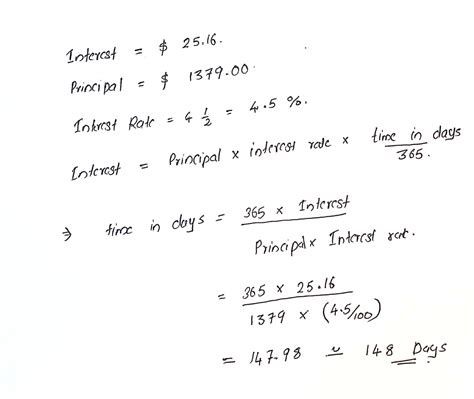 Interest = $ 25.16.
Principal = $ 1379.00.
Interest Rate = 4 1/2 = 4.5 %.
Interest = Principal x interest rate x time in days / 365.
⇒ time in days = 365 x Interest / Principal x Interest rat.
= 365 x 25.16 / 1379 x (4.5/100)
= 147.98 ≃ 148 Days